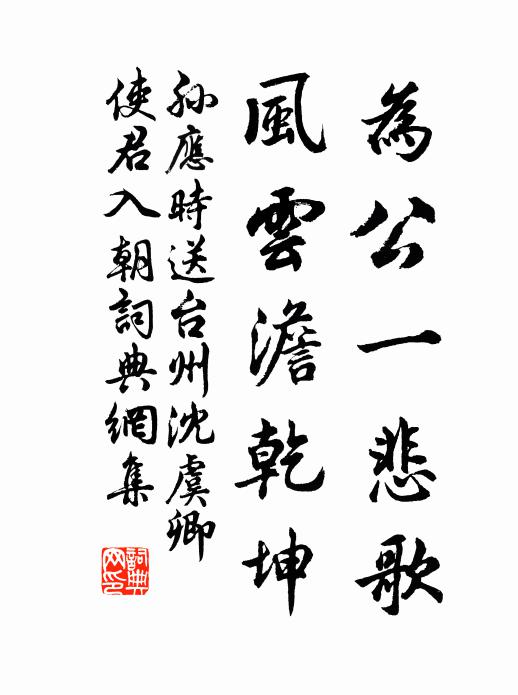 為公一悲歌
風雲澹乾坤
孫應時送台州沈虞卿
使君入朝詞典網集
詞典網印